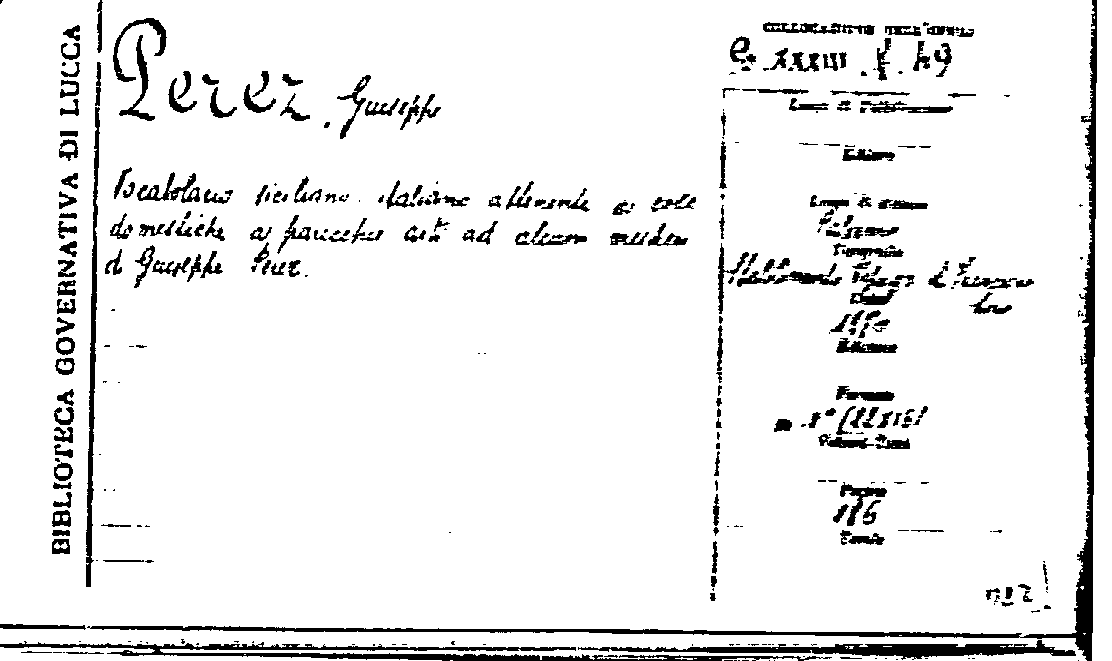 BIBLIOTECA GOVERNATIVA DI LUCCA
Perez, Giuseppe
Vocabolario siciliano-italiano attenente a cose
domestiche a parecchie arti ad alcuni mestieri
di Giuseppe Perez.
COLLOCAZIONE DELL'OPERA
XXXIII f. 49
Luogo di Pubblicazione
Editore
Luogo di stampa
Palermo
Tipografia
Stabilimento di Francesco
Lao
Edizione
Formato
in 8°
Pagine
Tavole